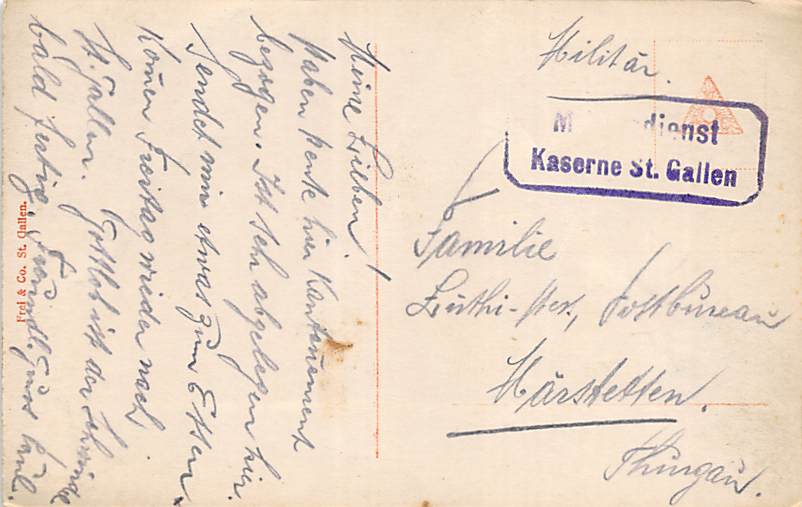 Meine Lieben!
Haben heute hier Kantonement
bezogen. Ist sehr abgelegen hier.
Sendet mir etwas zum Essen.
Komen Freitag wieder nach
St. Gallen. Gottlob ist der
bald fertig. Freundl. Gruss Paul.
Frei & Co. St. Gallen.
Militär.
dienst
Kaserne St. Gallen
Familie
Lüthi- Postbureau
Märstetten.
Thurgau.